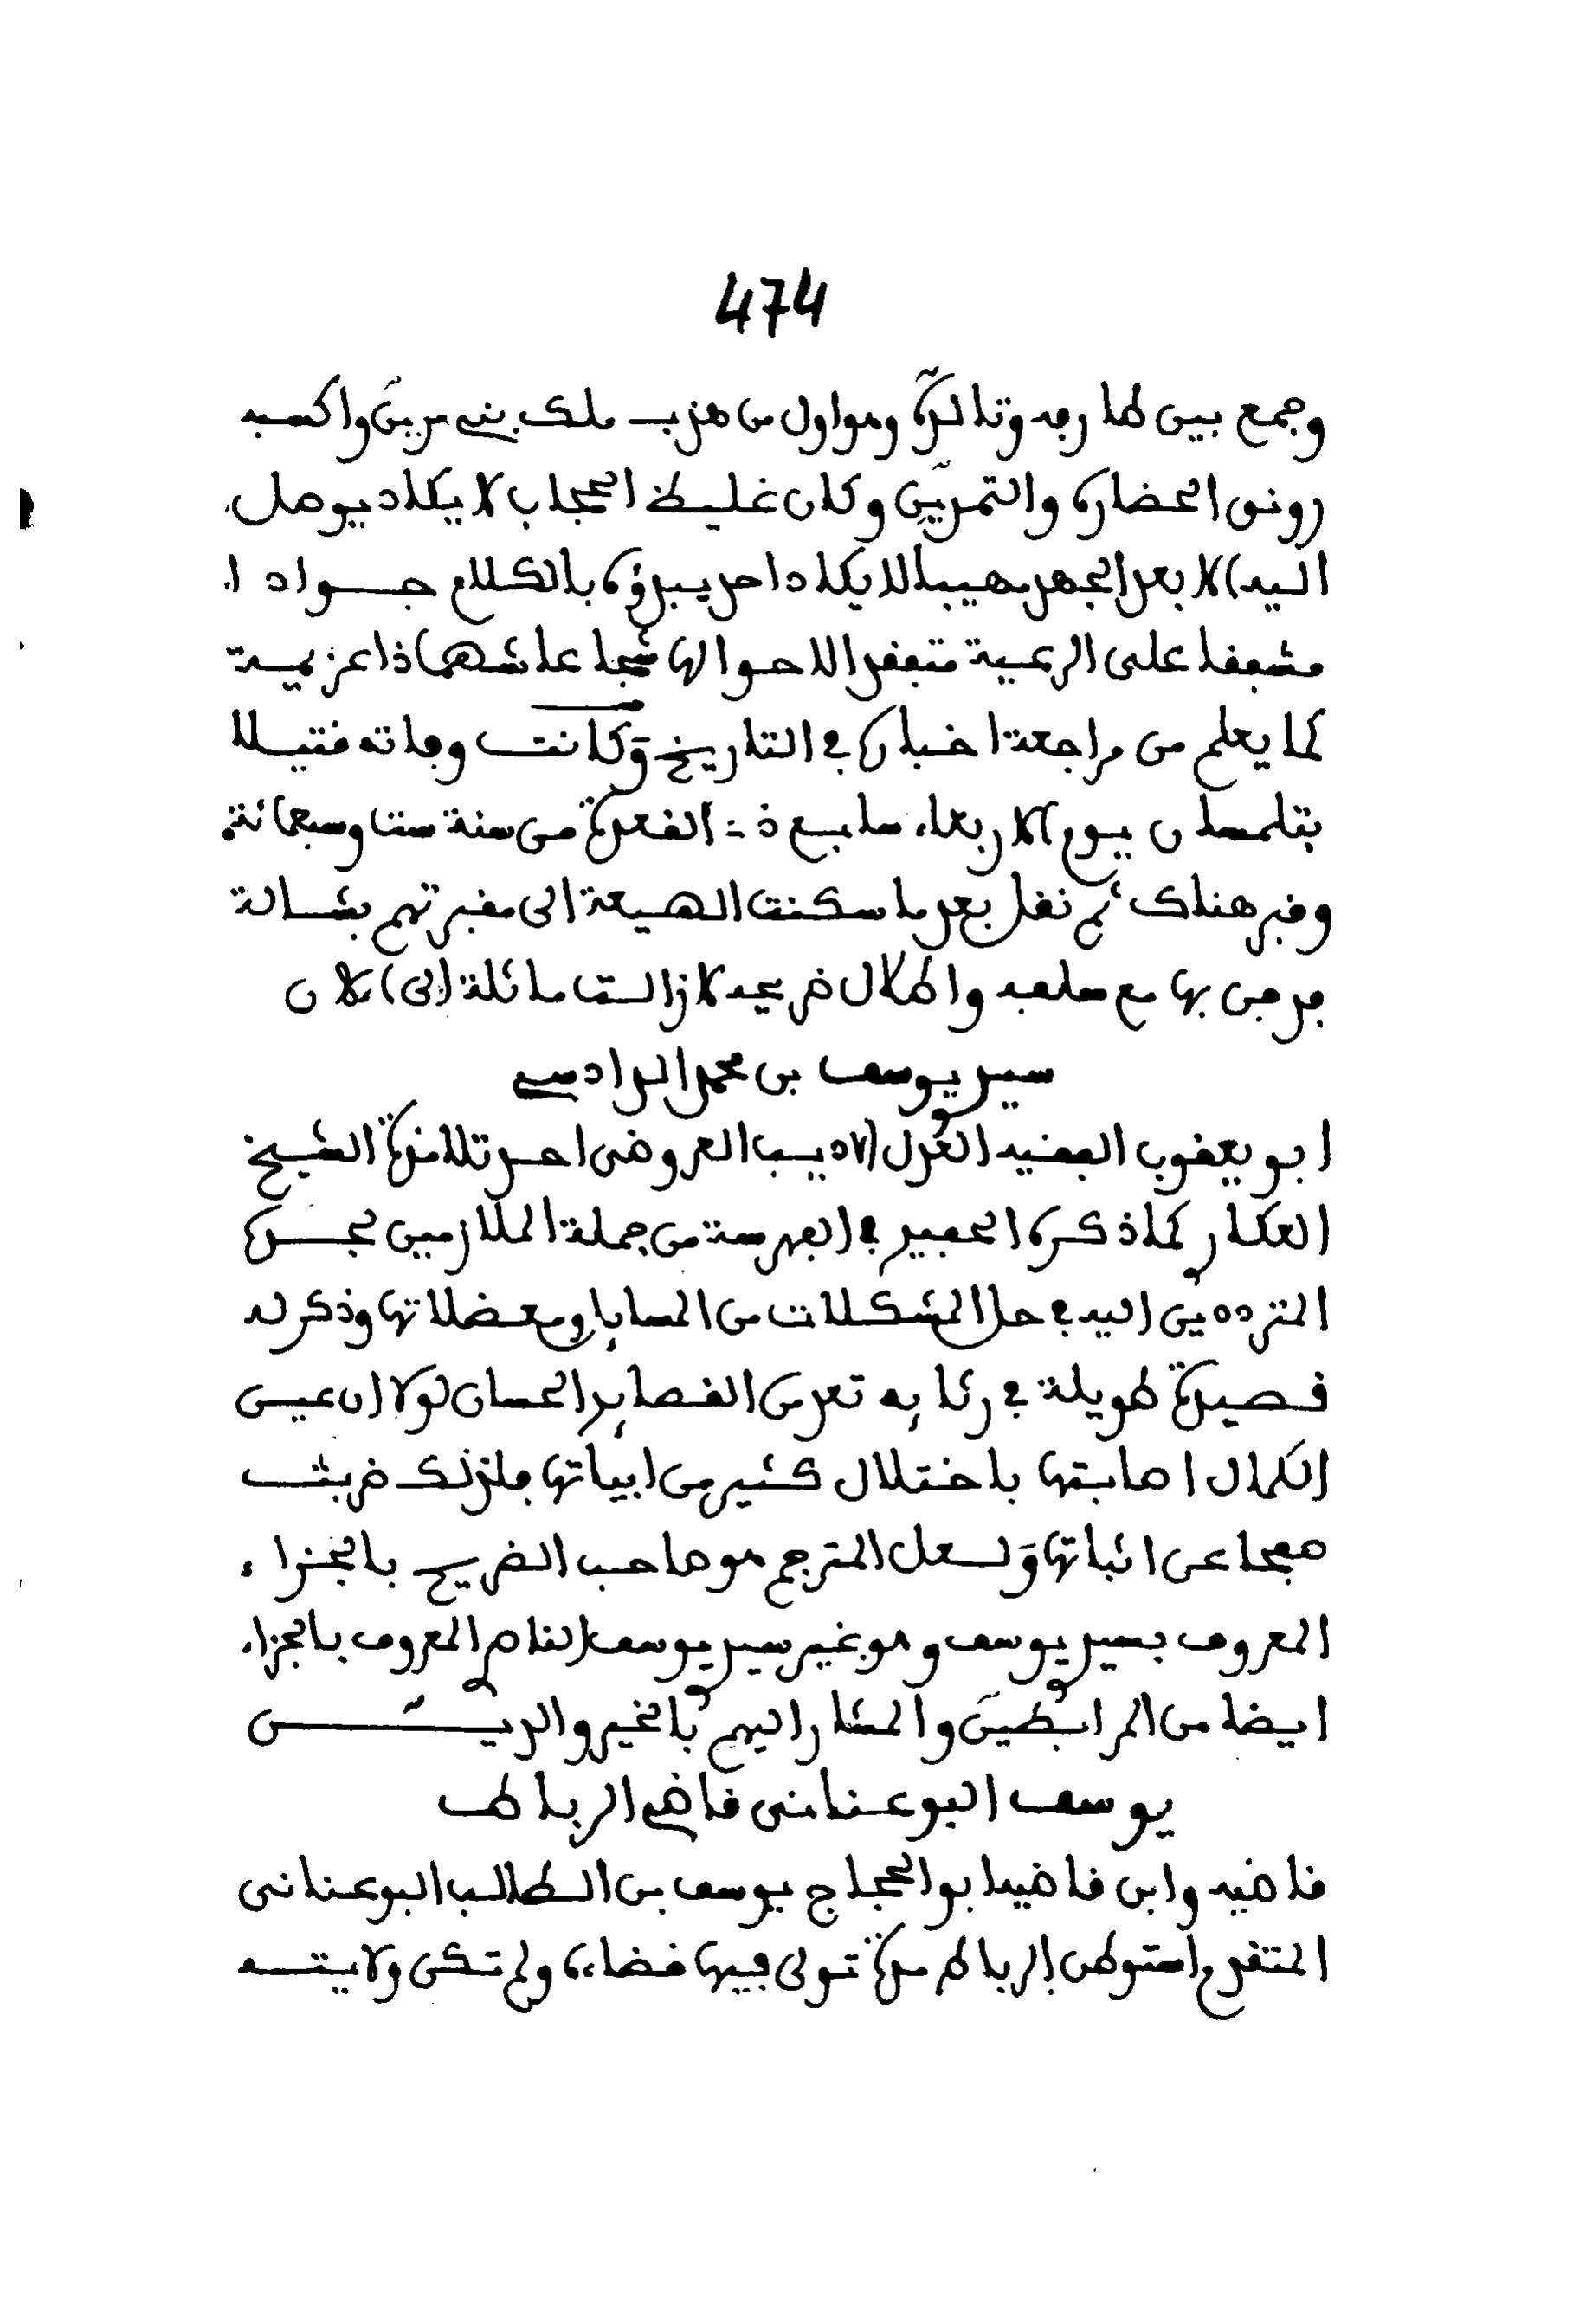 474
وجمع بين طارفه وتالده وهو اول من هذب ملك بني مرين واكسبه
رونق الحضارة والتمدين وكان غليظ الحجاب لا يكاد يوصل
اليه الا بعد الجهد مهيبا لا يكاد احد يبدؤه بالكلام جوادا
مشفقا على الرعية متفقدا لاحوالها شجاعا شهما ذا عزيمة
كما يعلم من مراجعة اخباره في التاريخ وكانت وفاته قتيلا
بتلمسان يوم الاربعاء سابع ذي القعدة من سنة ست وسبعمائة
وقبر هناك ثم نقل بعد ما سكنت الهيعة الى مقبرتهم بشالة
فدفن بها مع سلفه واطلال ضريحه لا زالت ماثلة الى الان
سيد يوسف بن محمد الرادسي
ابو يعقوب الفقيه العدل الاديب العروضي احد تلامذة الشيخ
العكار كما ذكره الحفيد في الفهرسة من جملة الملازمين لجده
المترددين اليه في حل المشكلات من المسايل ومعضلاتها وذكر له
قصيدة طويلة في رثايه تعد من القصايد الحسان لولا ان عين
الكمال اصابتها باختلال كثير من ابياتها فلذلك ضربت
صفحا عن اثباتها ولعل المترجم هو صاحب الضريح بالجزاء
المعروف بسيد يوسف وهو غير سيد يوسف النام المعروف بالجزاء
ايضا من المرابطين والمشار اليهم بالخير والدين
يوسف البوعناني قاضي الرباط
قاضيه وابن قاضيها ابو الحجاج يوسف بن الطالب البوعناني
المتقدم استوطن الرباط مدة تولى فيها قضاءه ولم تكن ولايته